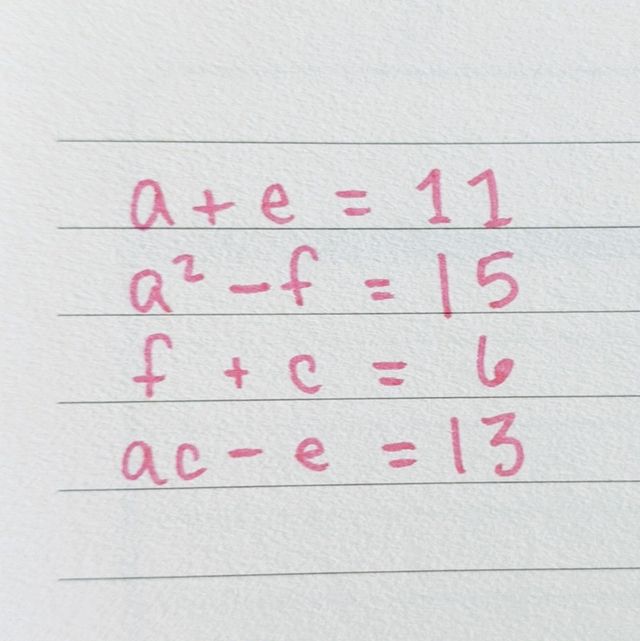 a + e = 11
a² - f = 15
f + c = 6
ac - e = 13